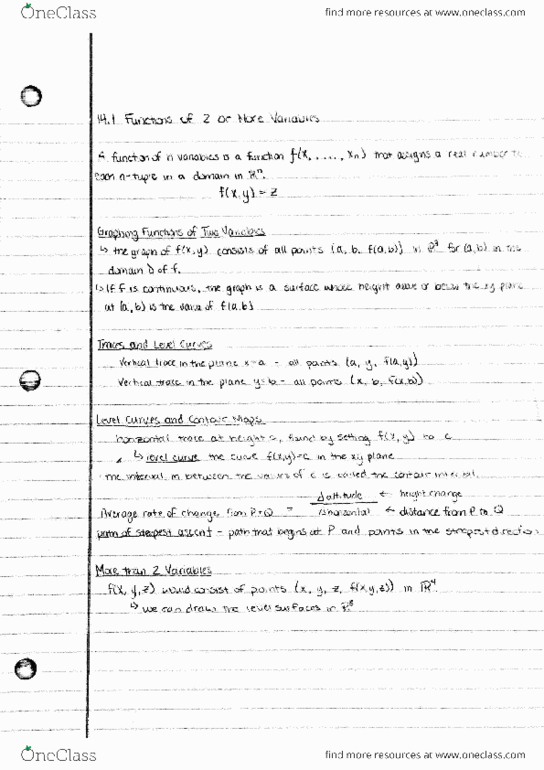 OneClass
find more resources at www.oneclass.com
14.1 Functions of 2 or More Variables
A function of n variables is a function f(x, ....., xn) that assigns a real number to
each n-tuple in a domain in ℝⁿ.
f(x,y) = z
Graphing Functions of Two Variables
↳ the graph of f(x,y) consists of all points (a, b, f(a,b)) in ℝ³ for (a,b) in the
domain D of f.
↳ If f is continuous, the graph is a surface whose height above or below the xy plane
at (a,b) is the value of f(a,b)
Traces and Level Curves
Vertical trace in the plane x=a - all points (a, y, f(a,y))
Vertical trace in the plane y=b - all points (x, b, f(x,b))
Level Curves and Contour Maps
horizontal trace at height c, found by setting f(x,y) to c
↳ level curve the curve f(x,y)=c in the xy plane
The interval m between the values of c is called the contour interval.
Average rate of change from P→Q = Δ altitude / Δ horizontal ← height change ← distance from P to Q
path of steepest ascent - path that begins at P and points in the steepest direction
More than 2 Variables
f(x, y, z) would consist of points (x, y, z, f(x,y,z)) in ℝ⁴.
↳ we can draw the level surfaces in ℝ³
OneClass
find more resources at www.oneclass.com